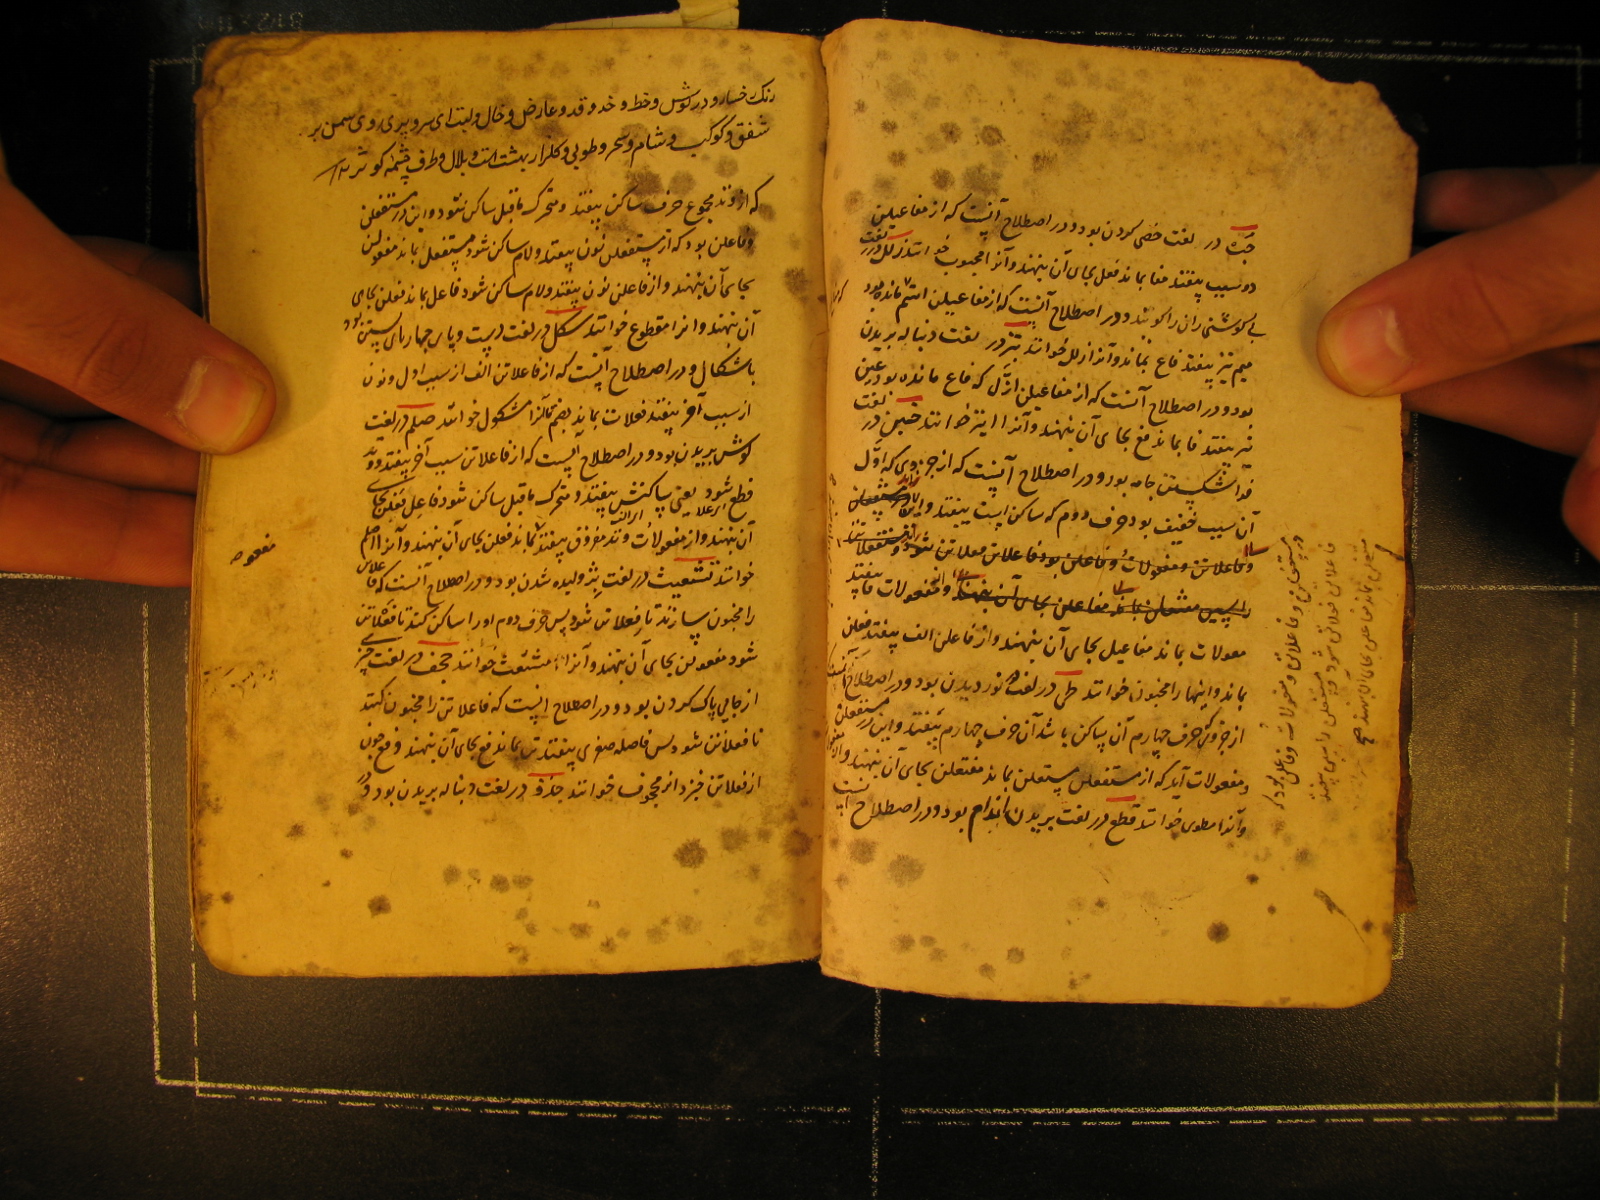 جَبّ در لغت خصی کردن بود و در اصطلاح آنست که از مفاعیلن
دو سبب بیفتد مفا بماند فعل بجای آن بنهند و آنرا مجبوب خوانند زلل در لغت
بی گوشتی ران را گویند و در اصطلاح آنست که از مفاعیلن اهتم مانده بود
میم نیز بیفتد فاع بماند و آنرا ازلل خوانند بتر در لغت دنباله بریدن
بود و در اصطلاح آنست که از مفاعیلن ازلّ که فاع مانده بود عین
نیز بیفتد فا بماند فع بجای آن بنهند و آنرا ابتر خوانند خبن در لغت
فرا شکستن جامه بود و در اصطلاح آنست که از جزوی که اوّل
آن سبب خفیف بود حرف دوم که ساکن است بیفتد و این در مستفعلن
و فاعلاتن و مفعولات و فاعلن بود فاعلاتن فعلاتن شود و مستفعلن
را سین متفعلن بماند مفاعلن بجای آن بنهند و از مفعولات فا بیفتد
معولات بماند مفاعیل بجای آن بنهند و از فاعلن الف بیفتد فعلن
بماند و اینها را مخبون خوانند طی در لغت نوردیدن بود و در اصطلاح آنست
از جزوی که حرف چهارم آن ساکن باشد آن حرف چهارم بیفتد و این در مستفعلن
و مفعولات آید که از مستفعلن مستعلن بماند مفتعلن بجای آن بنهند
و آنرا مطوی خوانند قطع در لغت بریدن اندام بود و در اصطلاح آنست
در مستفعلن و فاعلاتن و مفعولات و فاعلن بود که
فاعلاتن فعلاتن شود و مستفعلن را سین بیفتد
متفعلن بماند مفاعلن بجای آن بنهند صح
رنگ رخسار و در گوش و خط و خد و قد و عارض و خال و لبت ای سرو پری روی سمن بر
شفق و کوکب و شام و سحر و طوبی و گلزار بهشتست و بلال و طرف چشمه کوثر
که از وتد مجموع حرف ساکن بیفتد و متحرک ماقبل ساکن شود و این در مستفعلن
و فاعلن بود که از مستفعلن نون بیفتد و لام ساکن شود مستفعل بماند مفعولن
بجای آن بنهند و از فاعلن نون بیفتد و لام ساکن شود فاعل بماند فعلن بجای
آن بنهند و آنرا مقطوع خوانند شکل در لغت دست و پای چهارپای بستن بود
باشکال و در اصطلاح آنست که از فاعلاتن الف از سبب اول و نون
از سبب آخر بیفتد فعلات بماند بضم تا و آنرا مشکول خوانند صلم در لغت
گوش بریدن بود و در اصطلاح آنست که از فاعلاتن سبب آخر بیفتد و وتد
قطع شود یعنی ساکنش بیفتد و متحرک ماقبل ساکن شود فاعل فعلن بجای
آن بنهند و از مفعولات وتد مفروق بیفتد بماند فعلن بجای آن بنهند و آنرا اصلم
خوانند تشعیث در لغت ژولیده شدن بود و در اصطلاح آنست که فاعلاتن
را مخبون سازند تا فعلاتن شود پس حرف دوم او را ساکن کنند تا فعلاتن
شود مفعولن بجای آن بنهند و آنرا مشعث خوانند جحف در لغت چیزی
از جایی پاک کردن بود و در اصطلاح آنست که فاعلاتن را مخبون کنند
تا فعلاتن شود پس فاصله صغری بیفتد تن بماند فع بجای آن بنهند و فع چون
از فعلاتن خیزد آنرا مجحوف خوانند حذف در لغت دنباله بریدن بود و در